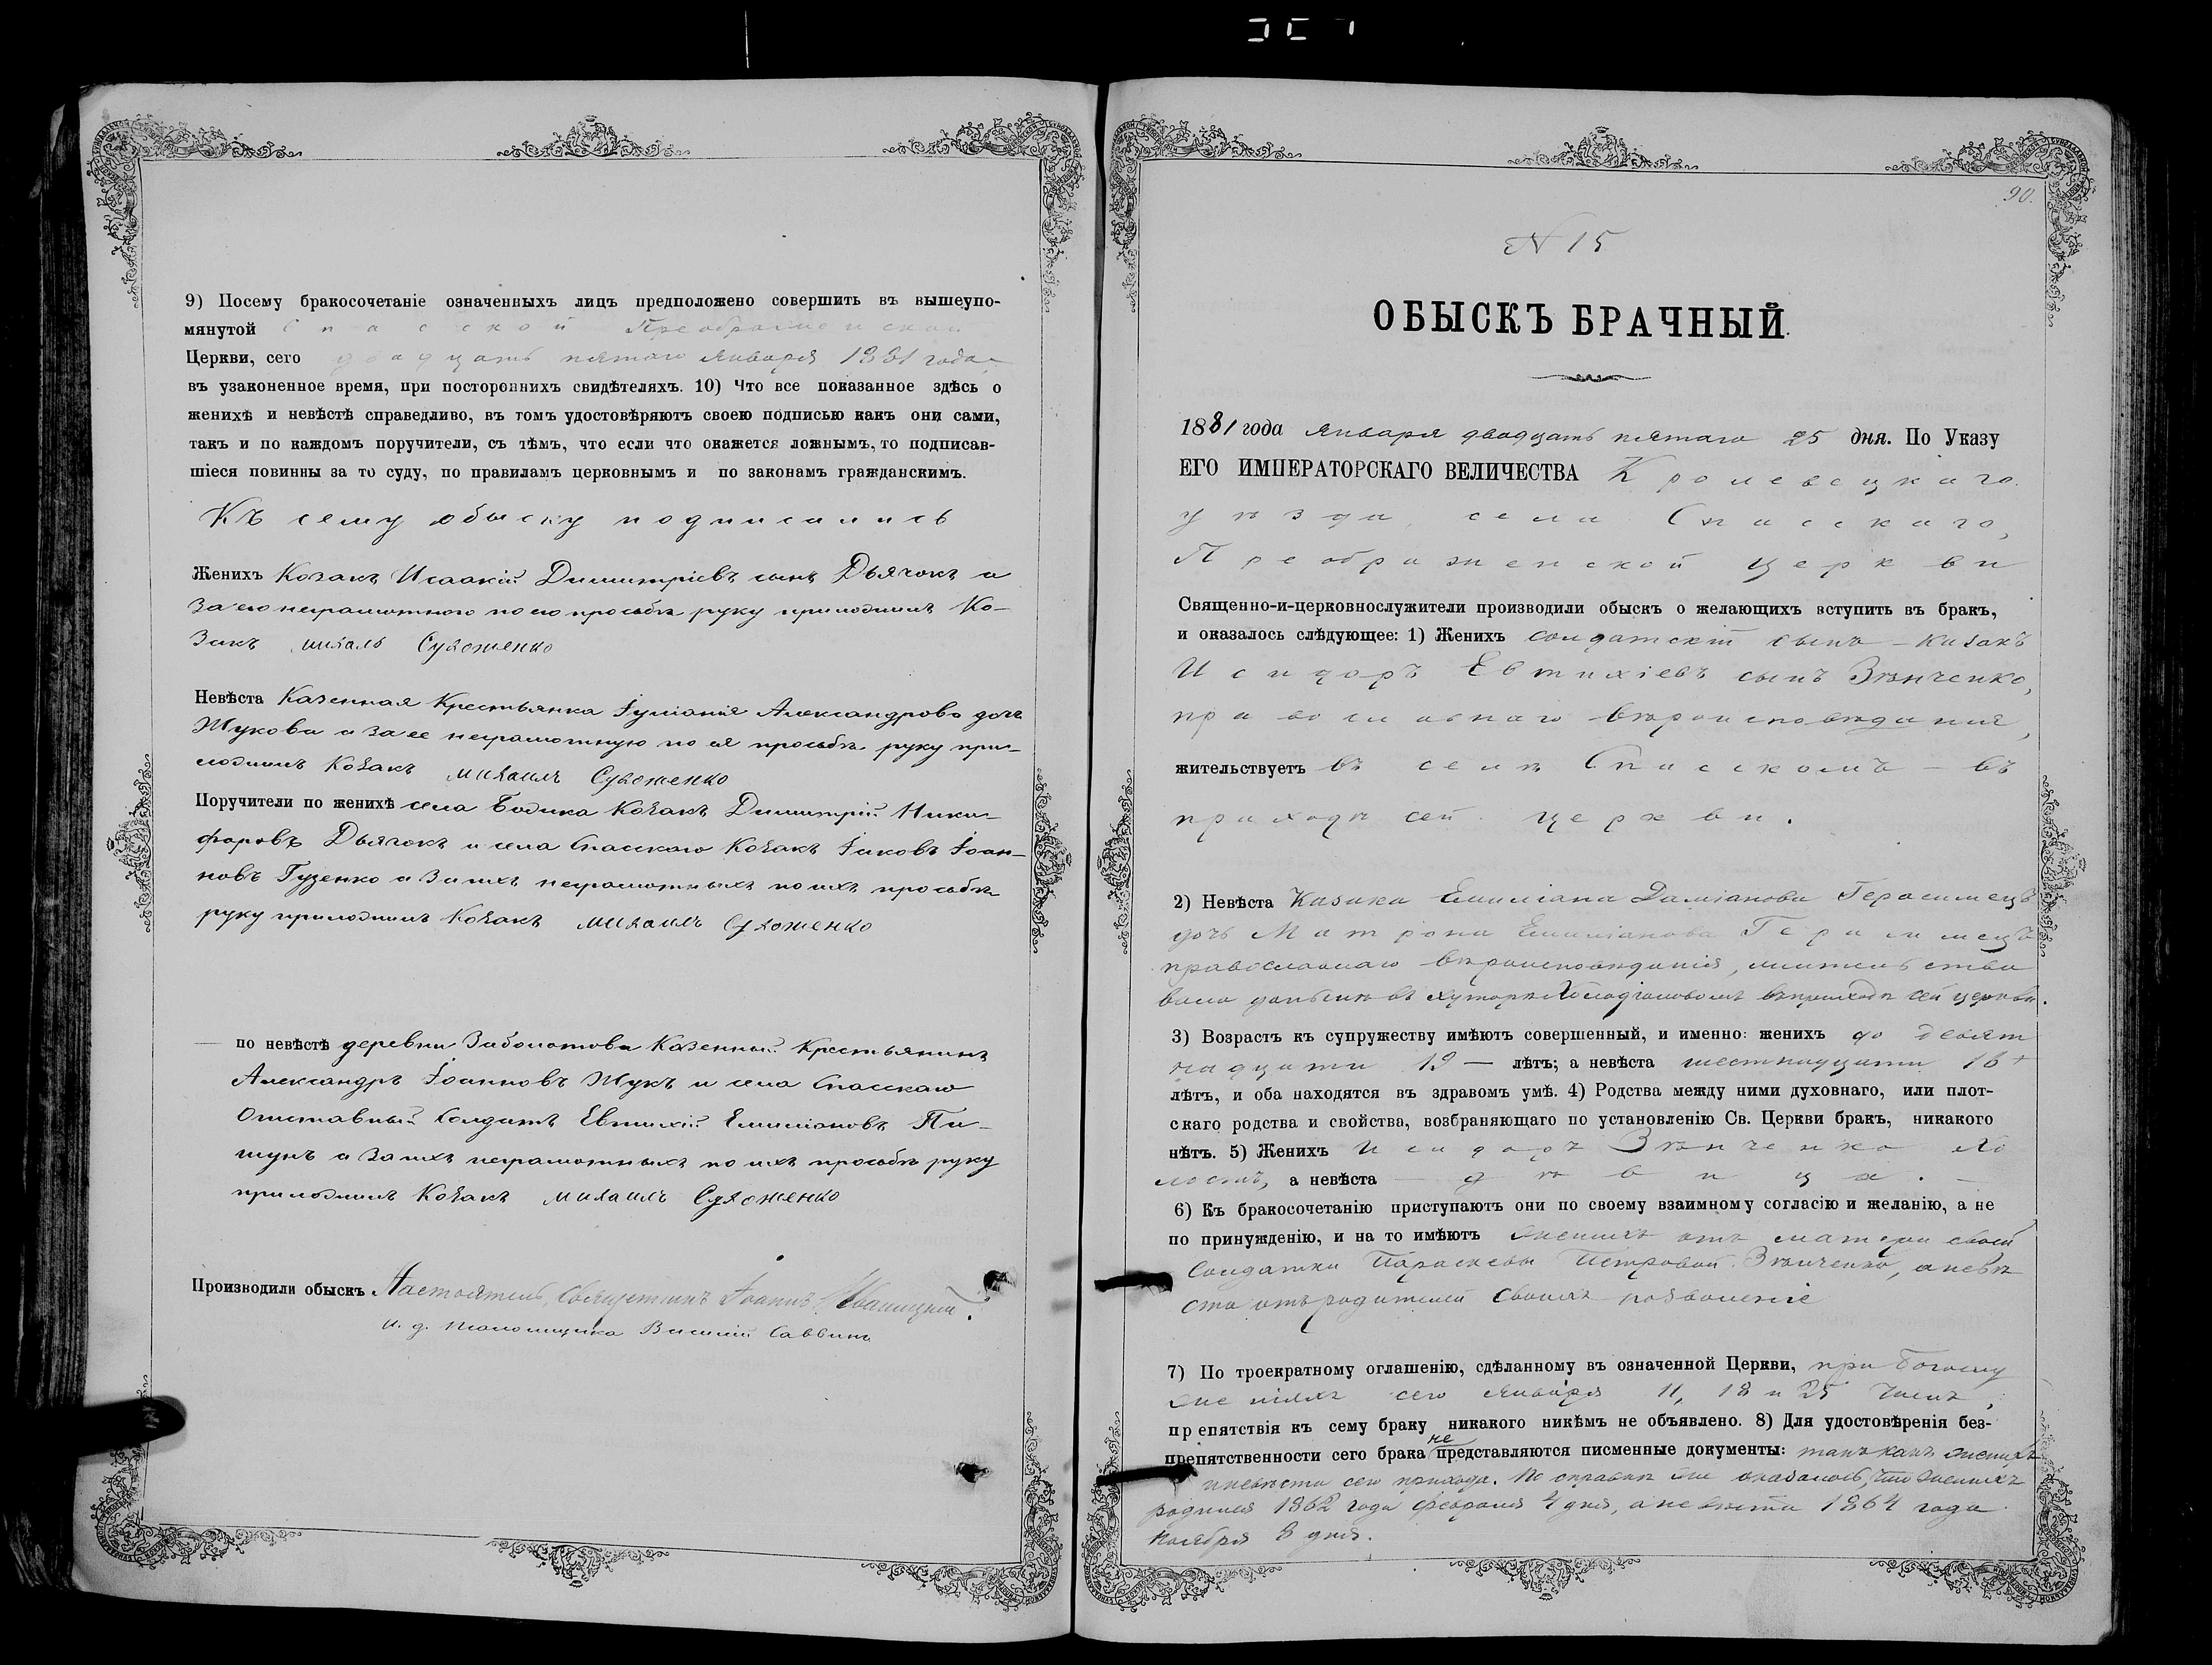 9) Посему бракосочетаніе означенныхъ лицъ предположено совершить въ вышеупо-
мянутой Спасской Преображенской
Церкви, сего двадцать пятаго Января 1881 года
въ узаконенное время, при постороннихъ свидѣтеляхъ. 10) Что все показанное здѣсь о
женихѣ и невѣстѣ справедливо, въ томъ удостовѣряютъ своею подписью какъ они сами,
такъ и по каждомъ поручители, съ тѣмъ, что если что окажется ложнымъ, то подписав-
шіеся повинны за то суду, по правиламъ церковнымъ и по законамъ гражданскимъ.
Къ сему обыску подписались
Женихъ Козакъ Исаакій Димитріевъ сынъ Дьячокъ а
за его неграмотного по его просьбѣ руку приложилъ Ко-
закъ
Невѣста Казенная Крестьянка Іуліанія Александрова дочь
Жукова а за ее неграмотную по ея просьбѣ руку при-
ложилъ Козакъ Михаилъ
Поручители по женихѣ села Козакъ Димитрій Ники-
форовъ Дьячокъ и села Спасскаго Козакъ Іаковъ Іоан-
новъ Гузенко а за ихъ неграмотныхъ по ихъ просьбѣ
руку приложилъ Козакъ Михаилъ
по невѣстѣ деревни Заболотова Казенный Крестьянинъ
Александръ Іоанновъ Жукъ и села Спасскаго
Отставный Солдатъ Евтихій Емиліановъ Пи-
шунъ а за ихъ неграмотныхъ по ихъ просьбѣ руку
приложилъ Козакъ Михаилъ
Производили обыскъ Настоятель, Священникъ Іоаннъ
и. д. Псаломщика Василій Саввинъ
90.
N 15
ОБЫСКЪ БРАЧНЫЙ.
1881 года Января двадцать пятаго 25 дня. По Указу
ЕГО ИМПЕРАТОРСКАГО ВЕЛИЧЕСТВА Кролевецкаго
уѣзда, села Спасскаго,
Преображенской церкви
Священно-и-церковнослужители производили обыскъ о желающихъ вступить въ бракъ,
и оказалось слѣдующее: 1) Женихъ солдатскій сынъ – казакъ
Исидоръ Евтихіевъ сынъ Зѣнченко,
православнаго вѣроисповѣданія,
жительствуетъ въ селѣ Спасскомъ – въ
приходѣ сей церкви.
2) Невѣста Казака Емиліана Даміанова Герасимецъ
дочь Матрона Емиліанова Герасимецъ
православнаго вѣроисповѣданія, жительство
вала въ хуторѣ въ приходѣ сей церкви.
3) Возрастъ къ супружеству имѣютъ совершенный, и именно: женихъ до девят
надцати 19 – лѣтъ; а невѣста шестнадцати 16 +
лѣтъ, и оба находятся въ здравомъ умѣ. 4) Родства между ними духовнаго, или плот-
скаго родства и свойства, возбраняющаго по установленію Св. Церкви бракъ, никакого
нѣтъ. 5) Женихъ Исидоръ Зѣнченко хо
лостъ, а невѣста – дѣвица. –
6) Къ бракосочетанію приступаютъ они по своему взаимному согласію и желанію, а не
по принужденію, и на то имѣютъ женихъ отъ матери своей
Солдатки Параскевы Петровой Зѣнченко, а невѣ
ста отъ родителей своихъ позволеніе
7) По троекратному оглашенію, сдѣланному въ означенной Церкви, при Богослу
женіяхъ сего Января 11, 18 и 25 числъ,
препятствія къ сему браку никакого никѣмъ не объявлено. 8) Для удостовѣренія без-
препятственности сего брака не представляются писменные документы: такъ какъ женихъ
и невѣста сего прихода. По справкѣ же оказалось, что женихъ
родился 1862 года Февраля 4 дня, а невѣста 1864 года
Ноября 8 дня.